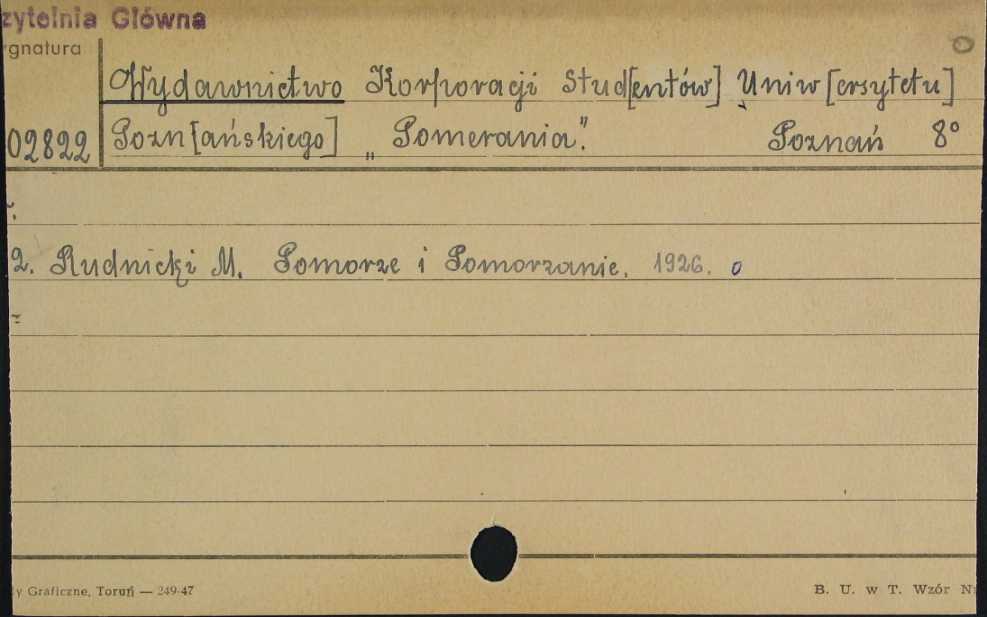 zytelnia Główna
gnatura
Wydawnictwo Korporacji Stud[entów] Uniw[ersytetu]
02822 Pozn[ańskiego] „Pomerania." Poznań 8°
2. Rudnicki M. Pomorze i Pomorzanie. 1926. o
y Graficzne, Toruń — 249-47
B. U. w T. Wzór N